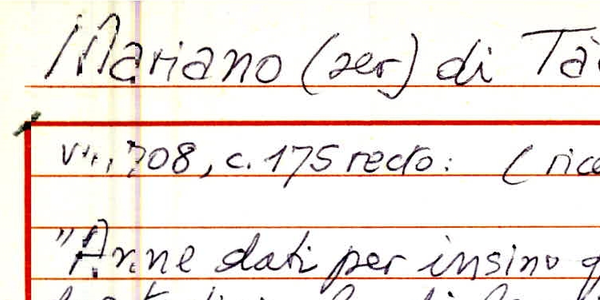 Mariano (ser) di
708, c. 175 recto: (
"Anne dati per insino